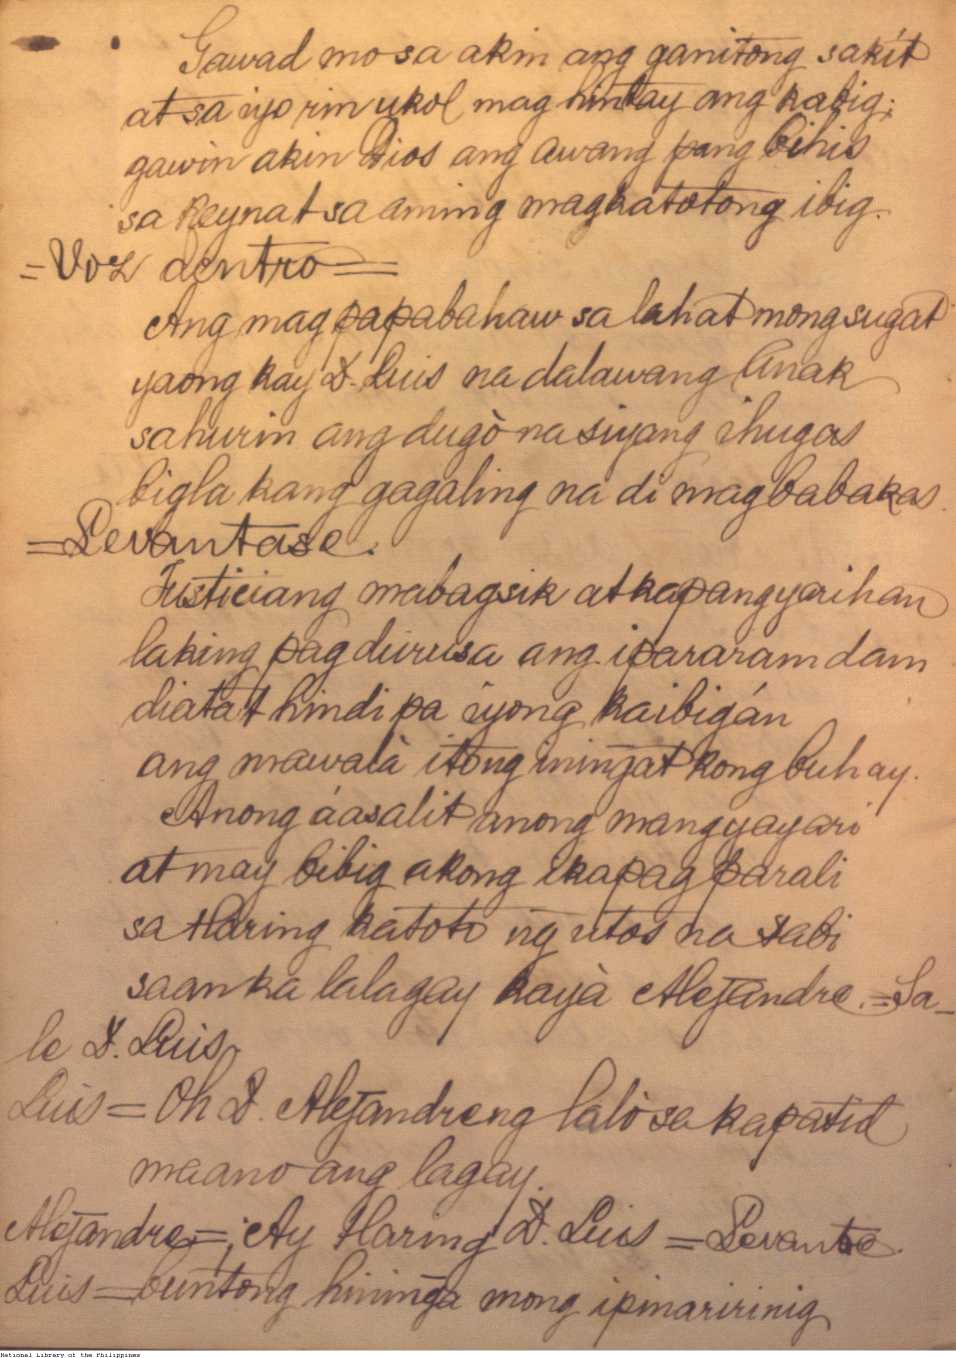 Gawad mo sa akin ang ganitong sakít
at sa iyo rin ukol mag hintay ang kabig;
gawin akin Dios ang awang pang bihis
sa Reynat sa aming magkatotong ibig.
= Voz dentro =
Ang mag papabahaw sa lahat mong sugat
yaong kay D. Luis na dalawang Anak
sahurin ang dugò na siyang ihugas
bigla kang gagaling na di magbabakas.
= Levantase.
Justiciang mabagsik at kapangyarihan
laking pag durusa ang ipararamdam
diatat hindi pa iyong kaibigán
ang mawalà itong iningat kong buhay.
Anong áasalit anong mangyayari
at may bibig akong ikapag parali
sa Haring katoto ng utos na sabi
saan ka lalagay kayà Alejandre. = Sa-
le D. Luis,
Luis = Oh D. Alejandreng lalò sa kapatid
maano ang lagay.
Alejandre =; Ay Haring D. Luis = Levante.
Luis = buntong hininga mong ipinaririnig
National Library of the Philippines